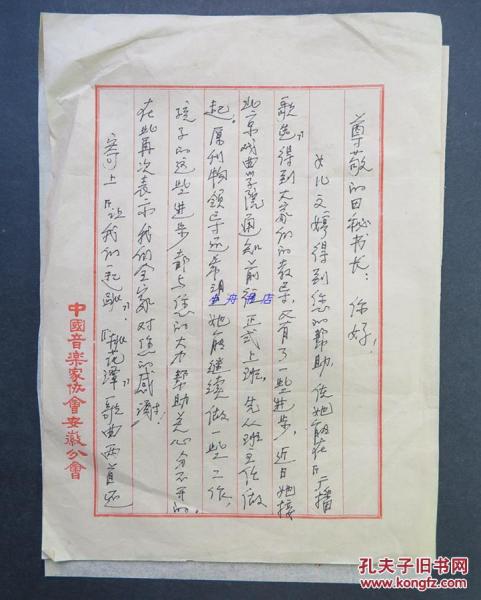 尊敬的田秘书长：你好！
女儿文娉得到您的帮助，使她能在《广播
歌选》得到大家们的教导，又有了一些进步，近日她接
北京戏曲学院通知前往正式上班，先从班主任做
起。原刊物领导还希望她能继续做一些工作，
孩子的这些进步都与您的大力帮助关心分不开的。
在此再次表示我们全家对您的感谢！
寄上《让我们一起歌》，《桃花潭》歌曲两首还
中國音樂家协會安徽分會
孔夫子旧书网
www.kongfz.com